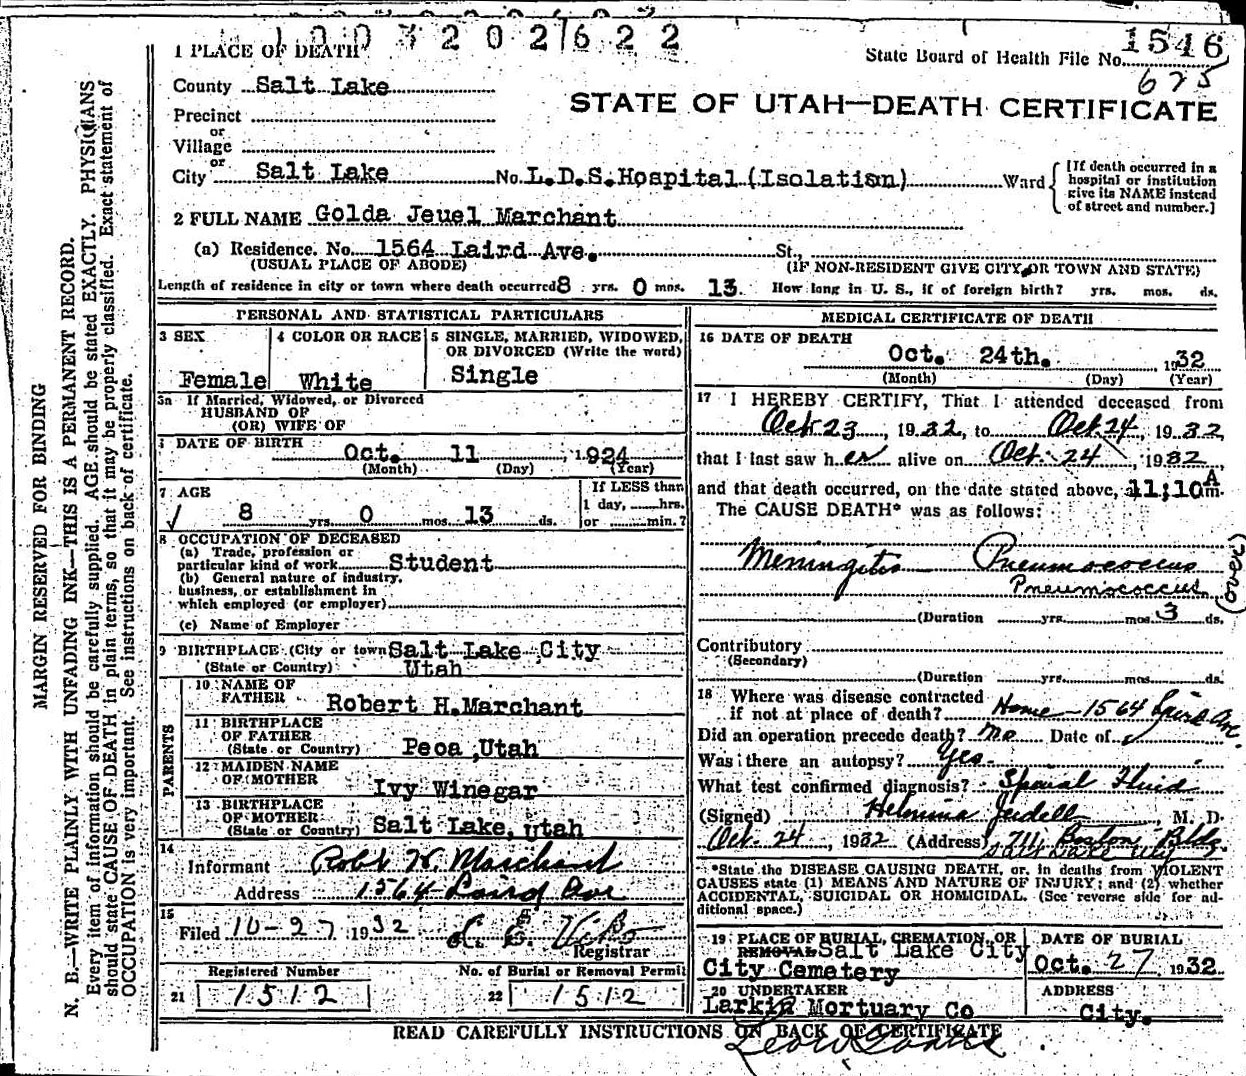 1003202622
1 PLACE OF DEATH
State Board of Health File No. 1516
675
County Salt Lake
STATE OF UTAH—DEATH CERTIFICATE
Precinct
or
Village
or
City Salt Lake No. L.D.S.Hospital (Isolation) Ward
[If death occurred in a hospital or institution give its NAME instead of street and number.]
2 FULL NAME Golda Jeuel Marchant
(a) Residence. No. 1564 Laird Ave. St.,
(USUAL PLACE OF ABODE) (IF NON-RESIDENT GIVE CITY OR TOWN AND STATE)
Length of residence in city or town where death occurred 8 yrs. 0 mos. 13. How long in U. S., if of foreign birth? yrs. mos. ds.
MARGIN RESERVED FOR BINDING
N. B.—WRITE PLAINLY WITH UNFADING INK—THIS IS A PERMANENT RECORD.
Every item of information should be carefully supplied. AGE should be stated EXACTLY. PHYSICIANS
should state CAUSE OF DEATH in plain terms, so that it may be properly classified. Exact statement of
OCCUPATION is very important. See instructions on back of certificate.
PERSONAL AND STATISTICAL PARTICULARS
3 SEX
Female
4 COLOR OR RACE
White
5 SINGLE, MARRIED, WIDOWED,
OR DIVORCED (Write the word)
Single
3a If Married, Widowed, or Divorced
HUSBAND OF
(OR) WIFE OF
DATE OF BIRTH
Oct. 11 1924
(Month) (Day) (Year)
7 AGE
8 yrs. 0 mos. 13 ds.
If LESS than
1 day, hrs.
or min.?
8 OCCUPATION OF DECEASED
(a) Trade, profession or
particular kind of work Student
(b) General nature of industry,
business, or establishment in
which employed (or employer)
(c) Name of Employer
9 BIRTHPLACE (City or town) Salt Lake City
(State or Country) Utah
PARENTS
10 NAME OF
FATHER Robert H.Marchant
11 BIRTHPLACE
OF FATHER
(State or Country) Peoa,Utah
12 MAIDEN NAME
OF MOTHER Ivy Winegar
13 BIRTHPLACE
OF MOTHER
(State or Country) Salt Lake, Utah
14
Informant Robt H. Marchant
Address 1564 Laird Ave
15
Filed 10-27 1932
Registrar
Registered Number No. of Burial or Removal Permit
21 1512 22 1512
MEDICAL CERTIFICATE OF DEATH
16 DATE OF DEATH
Oct. 24th. 1932
(Month) (Day) (Year)
17 I HEREBY CERTIFY, That I attended deceased from
Oct 23, 1932, to Oct 24, 1932,
that I last saw her alive on Oct. 24, 1932,
and that death occurred, on the date stated above, at 11;10 A m.
The CAUSE DEATH* was as follows:
Meningitis Pneumococcus
Pneumococcus
(over)
(Duration yrs. mos. 3 ds.
Contributory
(Secondary)
(Duration yrs. mos. ds.
18 Where was disease contracted
if not at place of death? Home - 1564 Laird Av.
Did an operation precede death? No Date of
Was there an autopsy? Yes.
What test confirmed diagnosis? Spinal Fluid
(Signed) Judell, M. D.
Oct. 24, 1932 (Address) 711 Boston Bldg.
Salt Lake City
*State the DISEASE CAUSING DEATH, or, in deaths from VIOLENT
CAUSES state (1) MEANS AND NATURE OF INJURY; and (2) whether
ACCIDENTAL, SUICIDAL OR HOMICIDAL. (See reverse side for ad-
ditional space.)
19 PLACE OF BURIAL, CREMATION, OR
REMOVAL Salt Lake City
City Cemetery
DATE OF BURIAL
Oct. 27 1932
20 UNDERTAKER
Larkin Mortuary Co
ADDRESS
City.
READ CAREFULLY INSTRUCTIONS ON BACK OF CERTIFICATE